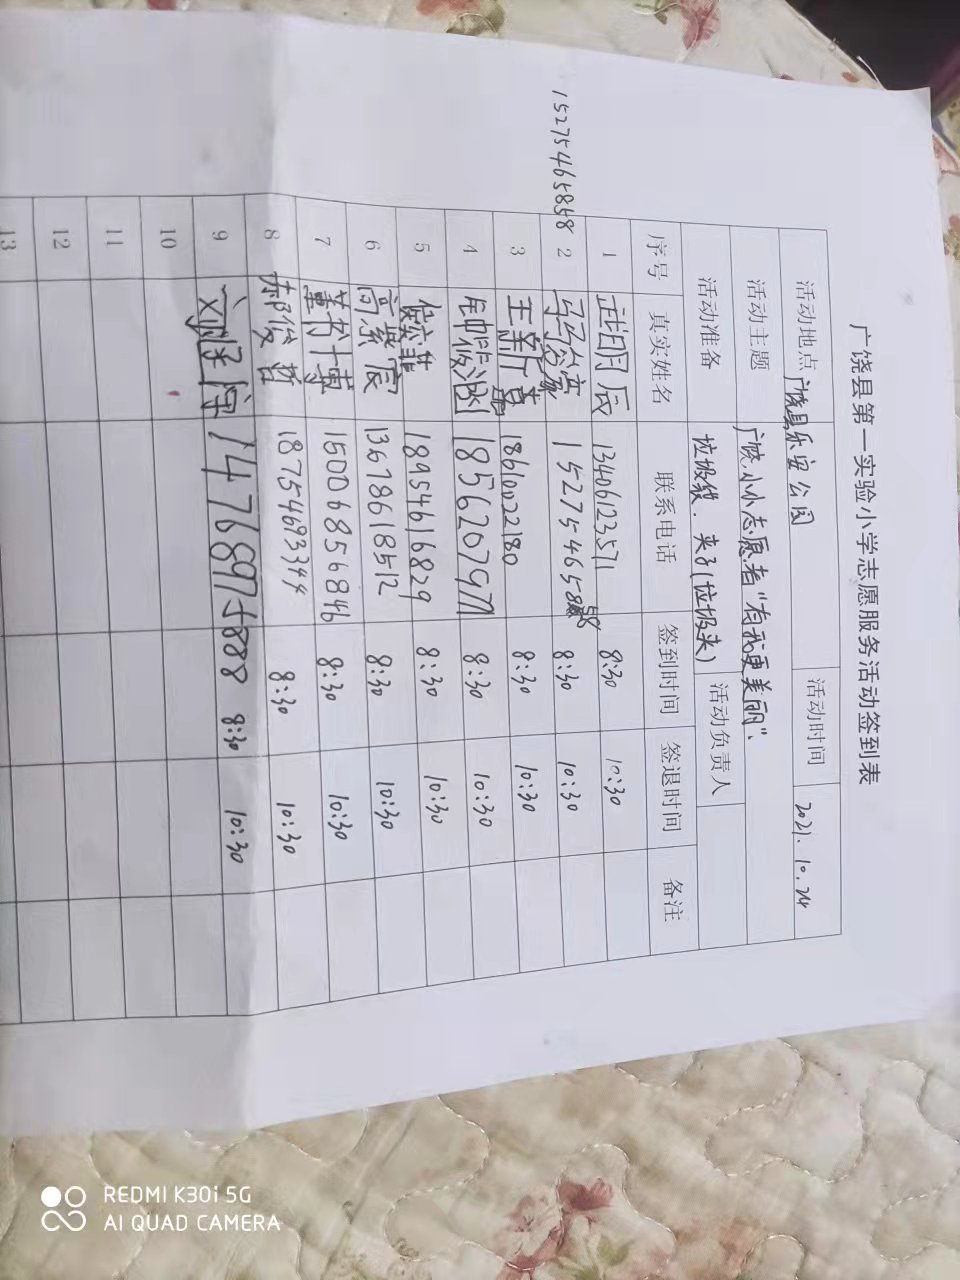 广饶县第一实验小学志愿服务活动签到表
活动地点 广饶县乐安公园 活动时间 2021.10.24
活动主题 广饶小小志愿者"有我更美丽".
活动准备 垃圾袋.夹子(垃圾夹) 活动负责人
序号 真实姓名 联系电话 签到时间 签退时间 备注
1 13406123571 8:30 10:30
15275465858
2 8:30 10:30
3 18610022180 8:30 10:30
4 8:30 10:30
5 18954616829 8:30 10:30
6 高紫宸 13678618512 8:30 10:30
7 董书博 15006856846 8:30 10:30
8 郝俊哲 18754693344 8:30 10:30
9 14768975888 8:30 10:30
10
11
12
13
REDMI K30i 5G
AI QUAD CAMERA